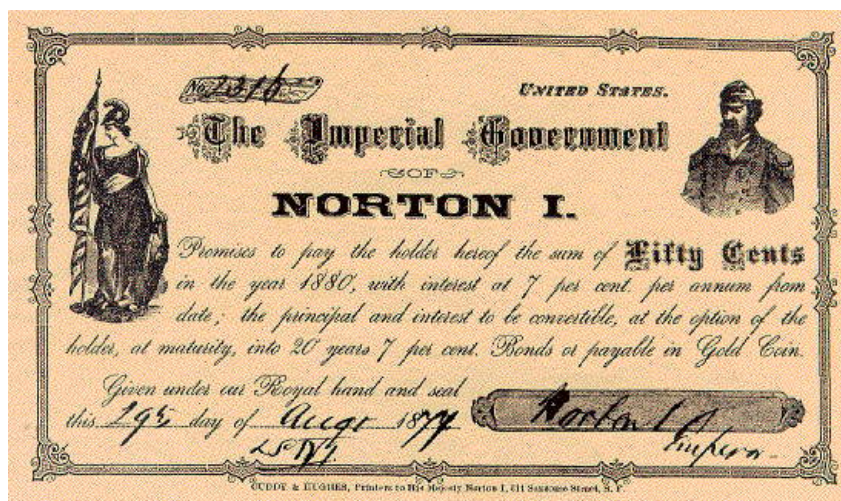 No. 2316
UNITED STATES.
The Imperial Government
OF
NORTON I.
Promises to pay the holder hereof the sum of Fifty Cents
in the year 1880, with interest at 7 per cent. per annum from
date; the principal and interest to be convertible, at the option of the
holder, at maturity, into 20 years 7 per cent. Bonds or payable in Gold Coin.
Given under our Royal hand and seal
this 29th day of Augt 1877
Norton I
Emperor
CUDDY & HUGHES, Printers to His Majesty Norton I, 511 Sansome Street, S. F.